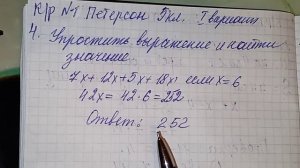 К/р №1 Петерсон 5кл. I вариант
4. Упростить выражение и найти
значение.
7x + 12x + 5x + 18x, если x = 6
42x = 42 · 6 = 252
Ответ: 252